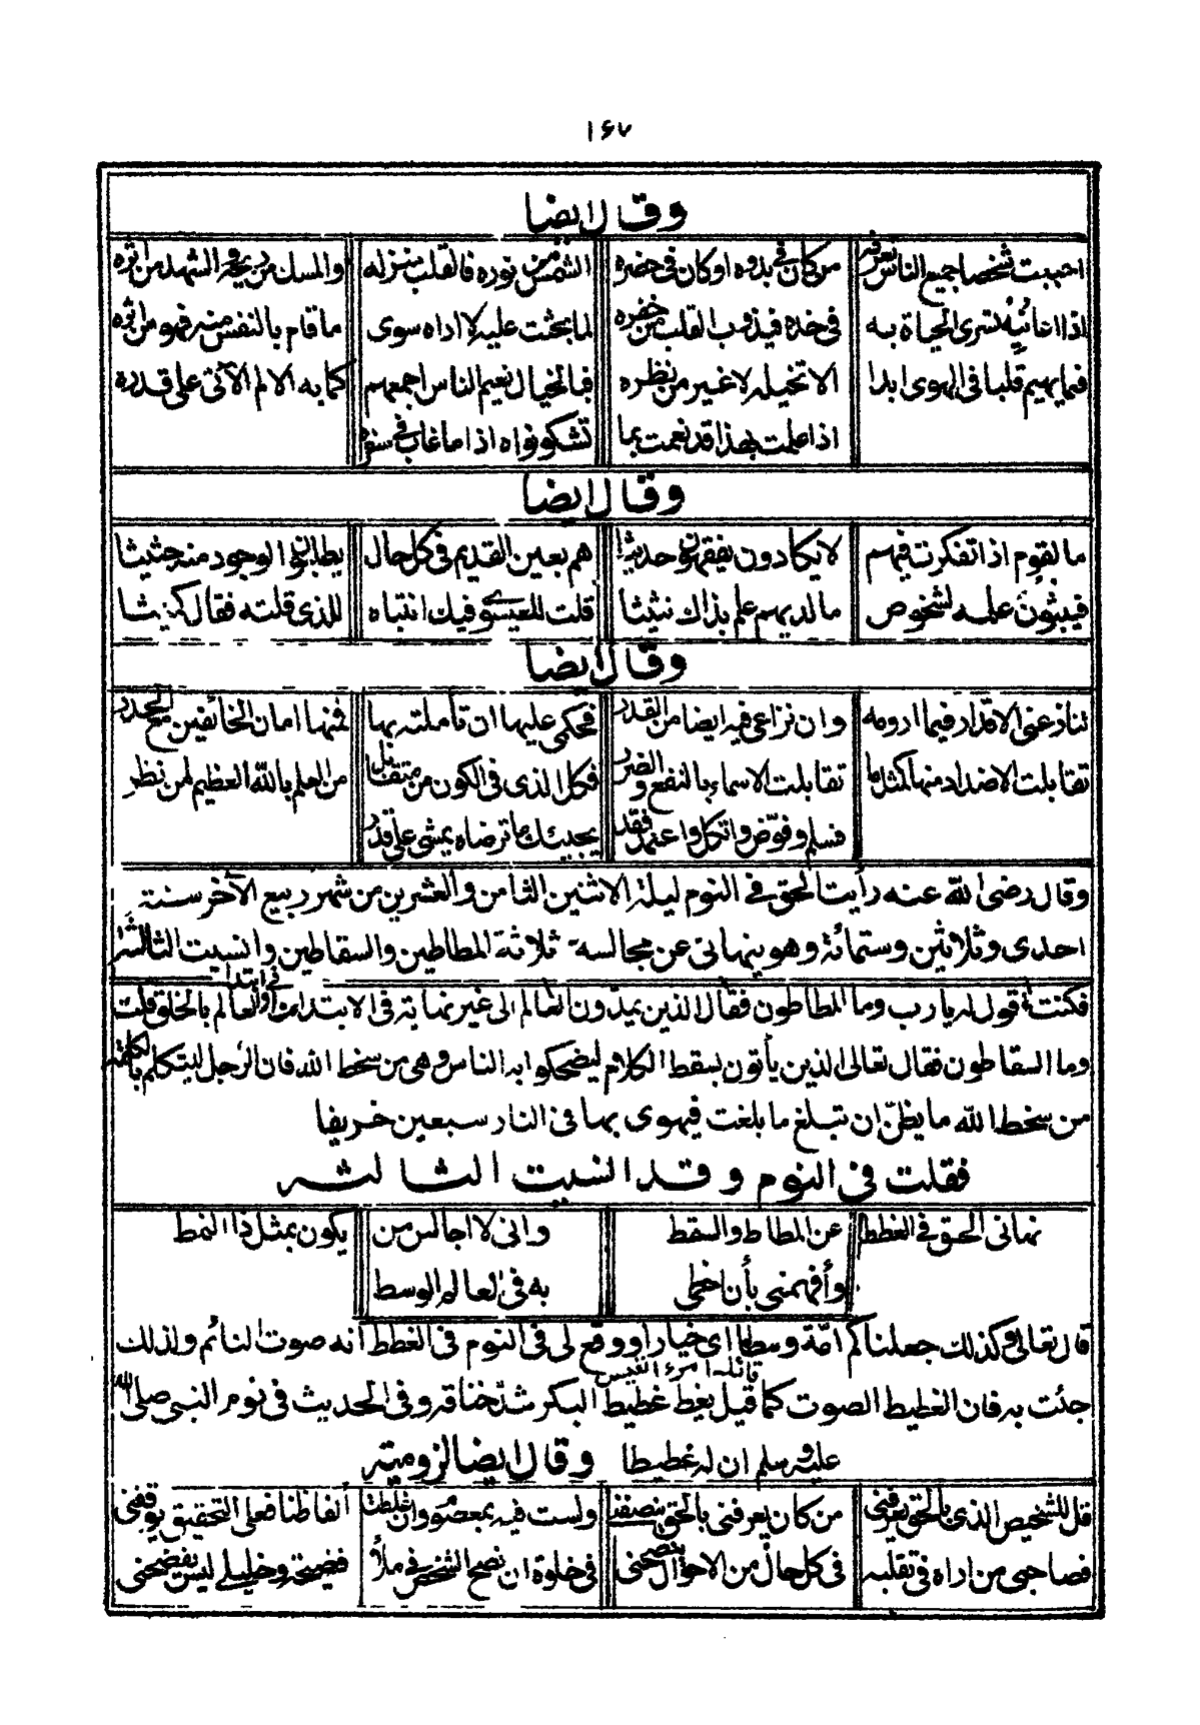 ١٦٧
وقال ايضا
احببت شخصا جميع الناس تعرفه من كان في بدوه او كان في حضره الشمس من نوره فالقلب منزله والمسك من ريحه والشهد من اثره
اذا اعانيه تسرى الحياة به فى خده فيذوب القلب من خفره لما بحثت عليه لا اراه سوى ما قام بالنفس منه فهو من اثره
فما يهيم قلبا فى الهوى ابدا الا تخيله لا غير من نظره فبالخيال نعيم الناس اجمعهم كما به الالم الآتى على قدره
اذا علمت بهذا قد نعمت بما تشكو نواه اذا ما غاب فى سفره
وقال ايضا
ما لقوم اذا تفكرت فيهم لا يكادون يفقهون حديثا هم بعين القديم فى كل حال يطلبون الوجود منه حثيثا
فيبثون علمه لشخوص ما لديهم علم بذاك نثيثا قلت للعيسوى فيك انتباه للذى قلته فقال كميثا
وقال ايضا
تنازعنى الاقدار فيما ارومه وان نزاعى فيه ايضا من القدر فحكمى عليها ان تأملته بها فمنها امان الخائفين مع الحذر
تقابلت الاضداد منها كمثل ما تقابلت الاسماء بالنفع والضرر فكل الذى فى الكون من متقابل من العلم بالله العظيم لمن نظر
فسلم وفوّض واتكل واعتمد فقد يجيئك ما ترضاه يمشى على قدر
وقال رضى الله عنه رأيت الحق فى النوم ليلة الاثنين الثامن والعشرين من شهر ربيع الآخر سنة
احدى وثلاثين وستمائة وهو ينهانى عن مجالسة ثلاثة المطاطين والسقاطين وانسيت الثالث
فكنت اقول له يا رب وما المطاطون فقال الذين يمدّون العالم الى غير نهاية فى الابتداء من اول العالم بالخلق قلت
فى ابتدا
وما السقاطون فقال تعالى الذين يأتون بسقط الكلام ليضحكوا به الناس وهى من سخط الله فان الرجل ليتكلم بالكلمة
من سخط الله ما يظنّ ان تبلغ ما بلغت فيهوى بها فى النار سبعين خريفا
فقلت فى النوم وقد انسيت الثالثه
نهانى الحق فى الغطط عن المطاط والسقط وانى لا اجالس من يكون بمثل ذا النمط
وأفهمنى بأن خطى به فى العالم الوسط
قال تعالى وكذلك جعلناكم امّة وسطا اى خيارا ووقع لى فى النوم فى الغطط انه صوت النائم ولذلك
قائله امرؤ القيس
جئت به فان الغطيط الصوت كما قيل يغط غطيط البكر شدّ خناقه وفى الحديث فى نوم النبى صلى الله
عليه وسلم ان له غطيطا وقال ايضا لزوميته
قل للشخيص الذى بالحق يعرفنى من كان يعرفنى بالحق ينصفنى ولست فيه بمعصوم وان غلطت الفاظنا فعلى التحقيق يوقفنى
فصاحبى من اراه فى تقلبه فى كل حال من الاحوال ينصحنى فى خلوة ان نصح الشخص فى ملأ فضيحة وخليلى ليس يفضحنى